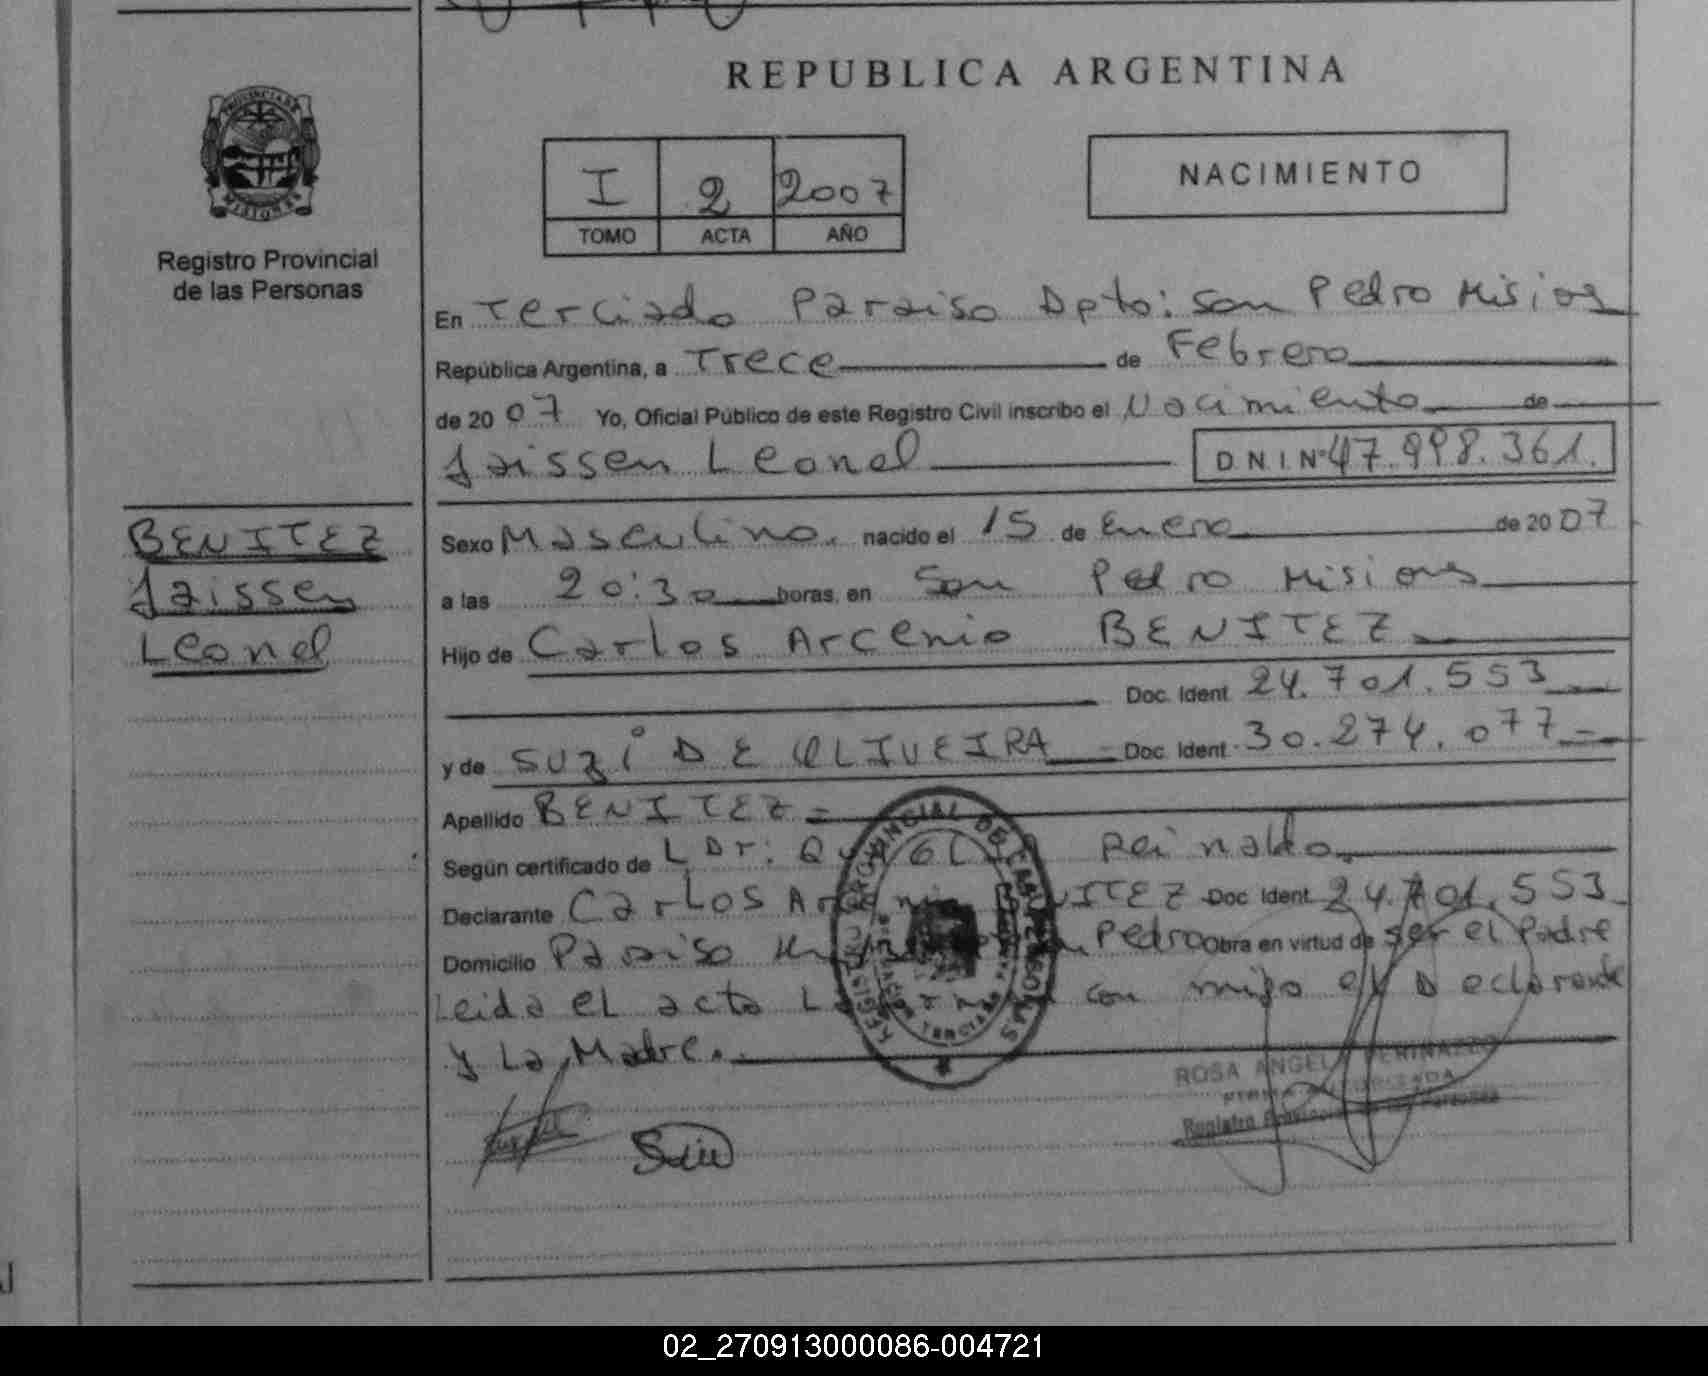 REPUBLICA ARGENTINA
PROVINCIA DE
MISIONES
Registro Provincial
de las Personas
I 2 2007
TOMO ACTA AÑO
NACIMIENTO
En Terciado Paraiso Dpto: San Pedro Misiones
República Argentina, a Trece de Febrero
de 2007 Yo, Oficial Público de este Registro Civil inscribo el Nacimiento de
Jaissen Leonel D N I Nº 47.998.361.
BENITEZ
Jaissen
Leonel
Sexo Masculino. nacido el 15 de Enero de 2007
a las 20:30 horas, en San Pedro Misiones
Hijo de Carlos Arcenio BENITEZ
Doc. Ident. 24.701.553
y de SUZi DE OLIVEIRA Doc. Ident. 30.274.077
Apellido BENITEZ
Según certificado de L Dr: Reinaldo.
Declarante Carlos BENITEZ Doc. Ident. 24.701.553
Domicilio Paraiso Pedro Obra en virtud de ser el Padre
Leida el acta con migo el Declarante
y La Madre.
REGISTRO PROVINCIAL DE LAS PERSONAS
ROSA ANGELA
Registro Provincial de las Personas
02_270913000086-004721